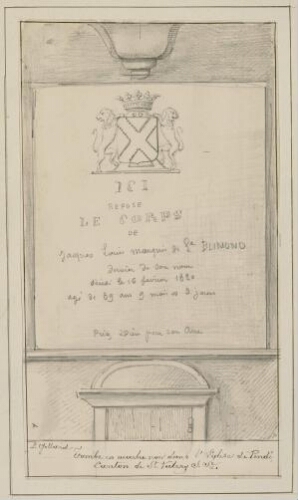 ICI
REPOSE
LE CORPS
DE
Jacques Louis marquis de St BLIMOND
dernier de son nom
décédé le 16 février 1820
agé de 89 ans 9 mois et 3 jours
Priez Dieu pour son Ame
Tombe en marbre noir dans l'Eglise de Pendé
Canton de St Valery